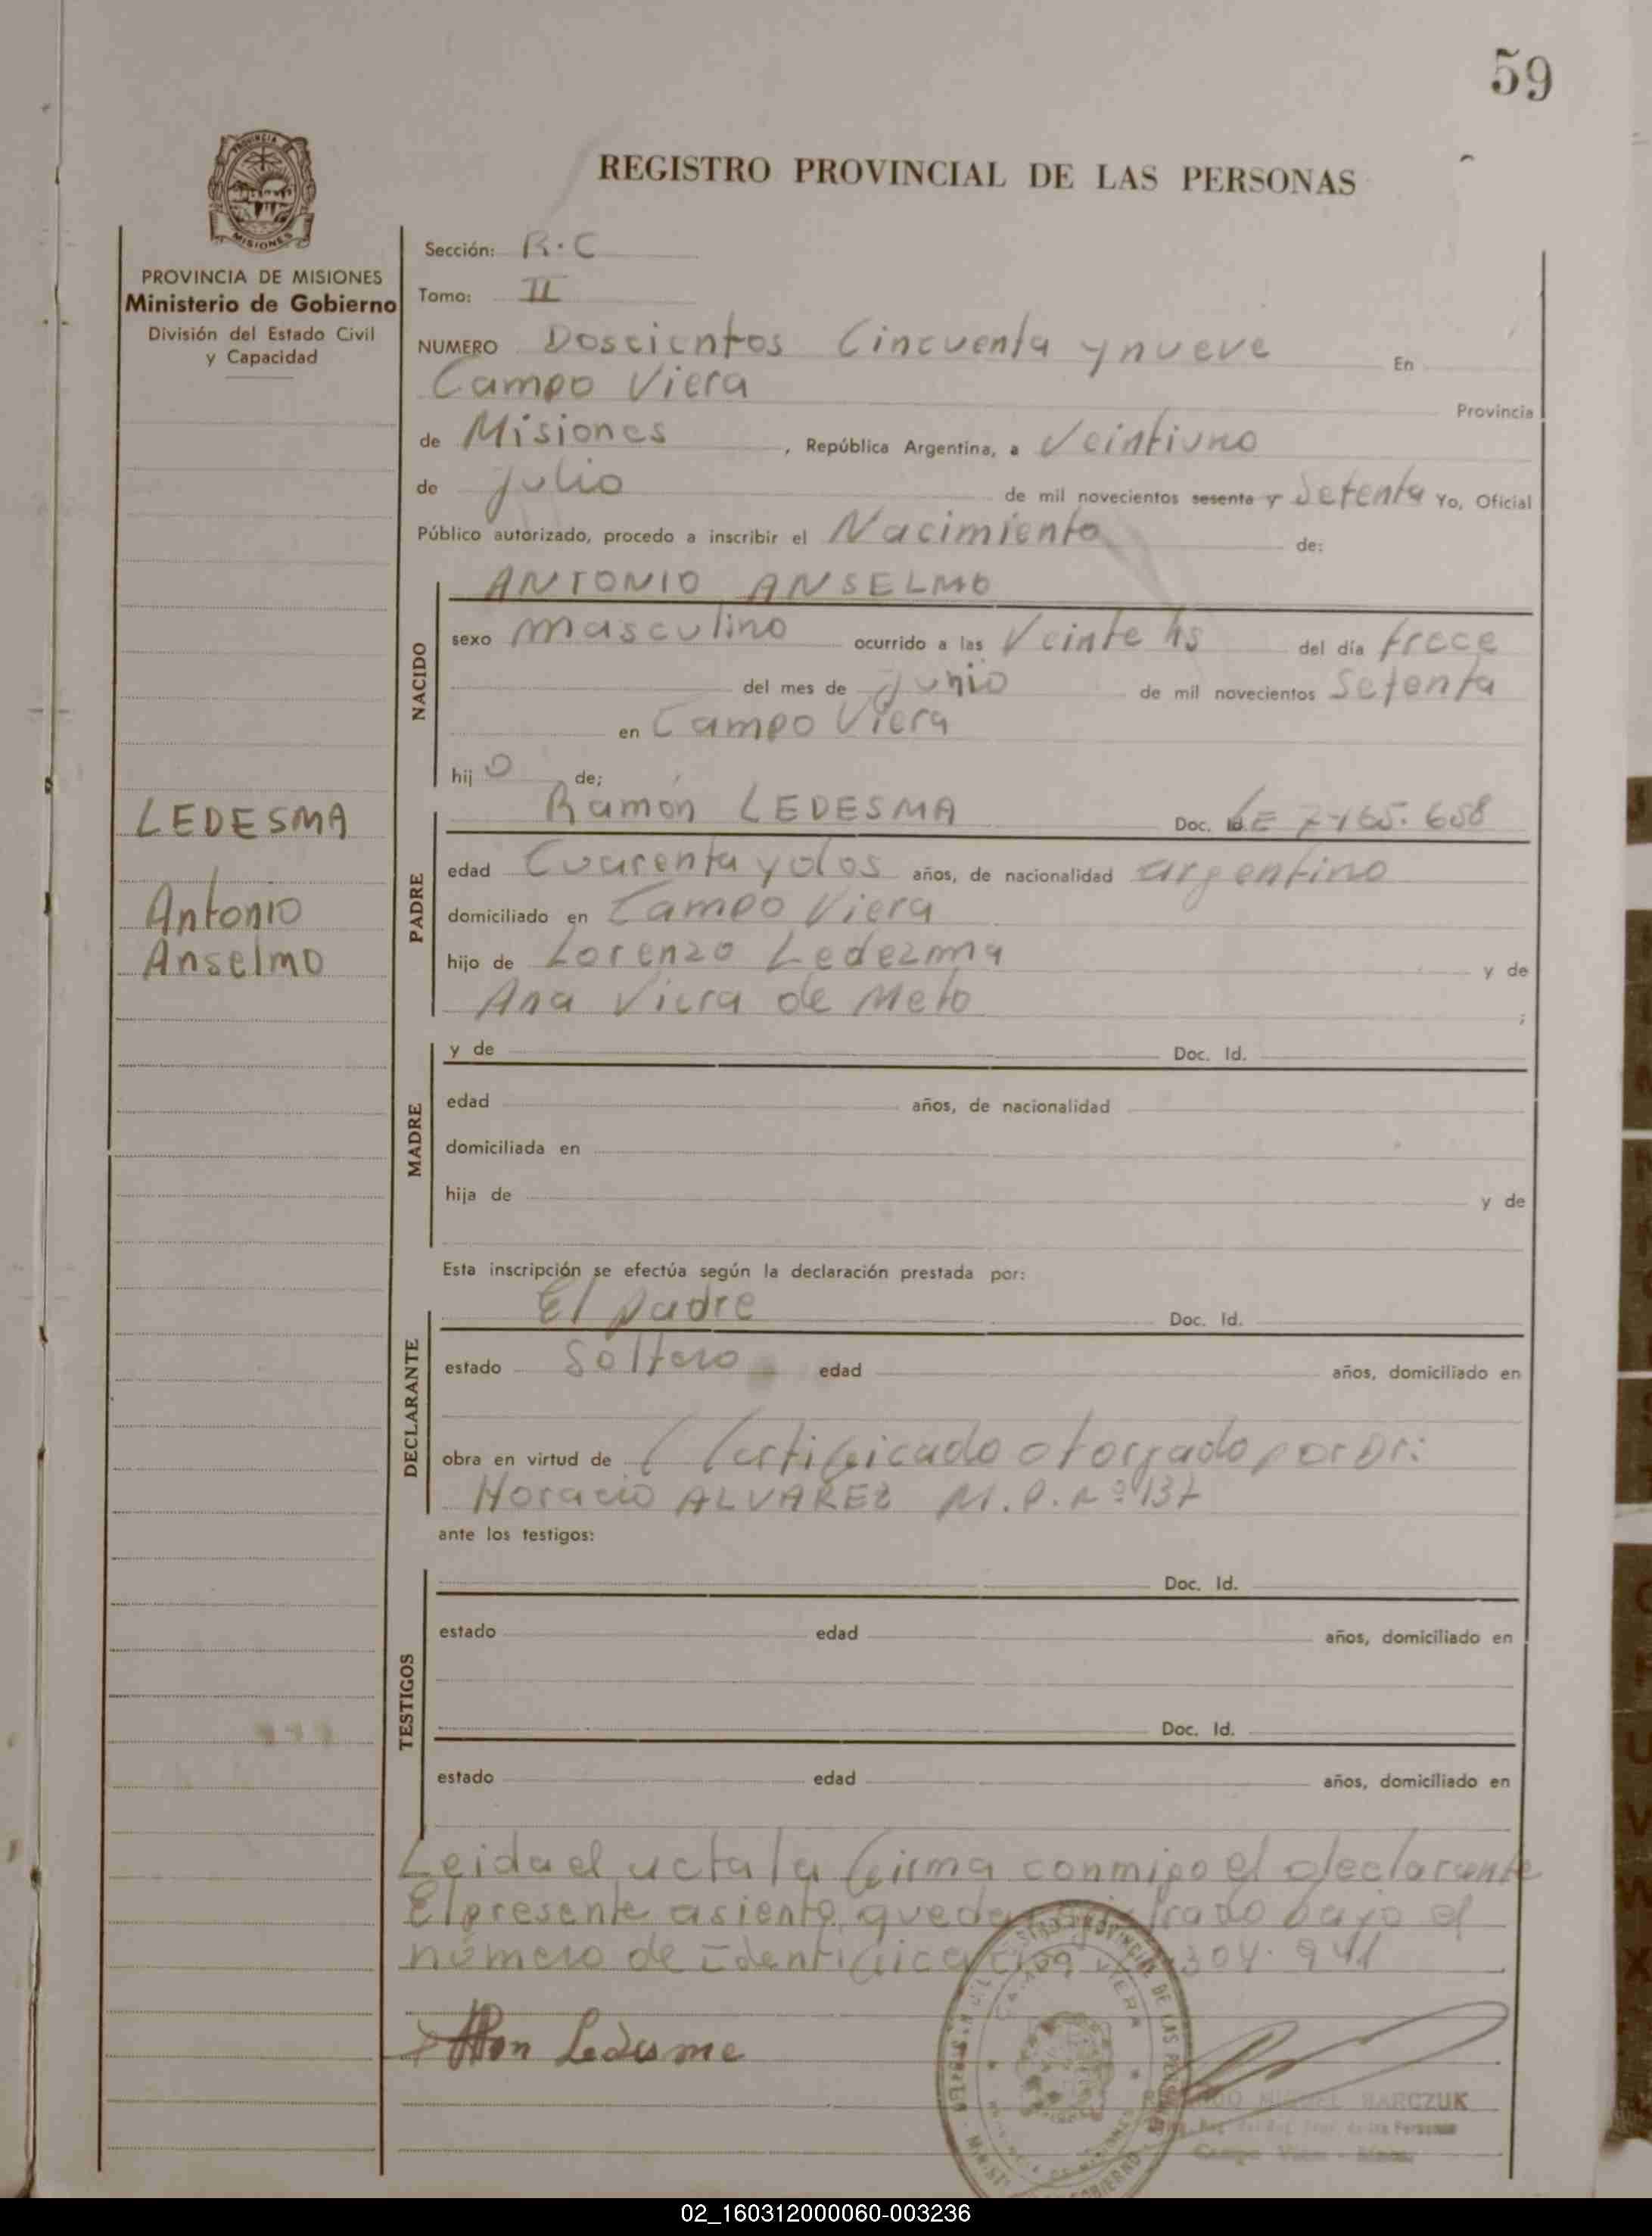 59
REGISTRO PROVINCIAL DE LAS PERSONAS
PROVINCIA DE
MISIONES
PROVINCIA DE MISIONES
Ministerio de Gobierno
División del Estado Civil
y Capacidad
LEDESMA
Antonio
Anselmo
Sección: R.C
Tomo: II
NUMERO Doscientos Cincuenta y nueve En
Campo Viera Provincia
de Misiones, República Argentina, a Veintiuno
de Julio de mil novecientos sesenta y Setenta Yo, Oficial
Público autorizado, procedo a inscribir el Nacimiento de:
ANTONIO ANSELMO
NACIDO
sexo masculino ocurrido a las Veinte hs del día trece
del mes de Junio de mil novecientos Setenta
en Campo Viera
hij o de;
PADRE
Ramón LEDESMA Doc. Id. LE 7.165.658
edad Cuarenta y dos años, de nacionalidad argentino
domiciliado en Campo Viera
hijo de Lorenzo Ledezma y de
Ana Viera de Melo ;
MADRE
y de Doc. Id.
edad años, de nacionalidad
domiciliada en
hija de y de
Esta inscripción se efectúa según la declaración prestada por:
DECLARANTE
El padre Doc. Id.
estado Soltero edad años, domiciliado en
obra en virtud de Certificado otorgado por Dr:
Horacio ALVAREZ M.P. Nº 137
ante los testigos:
TESTIGOS
Doc. Id.
estado edad años, domiciliado en
Doc. Id.
estado edad años, domiciliado en
Leida el acta la firma conmigo el declarante
El presente asiento queda bajo el
número de identificación 304.941
Ledesme
BARCZUK
02_160312000060-003236